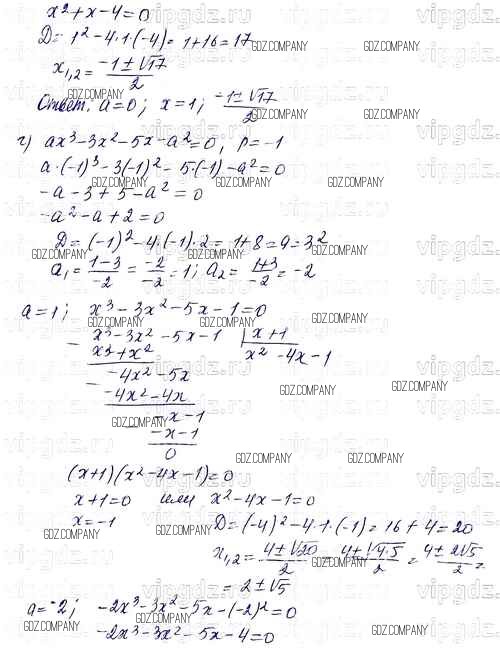 x² + x - 4 = 0
D = 1² - 4·1·(-4) = 1 + 16 = 17
x₁,₂ = (-1 ± √17)/2
Ответ: a = 0; x = 1; (-1 ± √17)/2
г) ax³ - 3x² - 5x - a² = 0, p = -1
a·(-1)³ - 3(-1)² - 5·(-1) - a² = 0
-a - 3 + 5 - a² = 0
-a² - a + 2 = 0
D = (-1)² - 4·(-1)·2 = 1 + 8 = 9 = 3²
a₁ = (1-3)/-2 = -2/-2 = 1; a₂ = (1+3)/-2 = -2
a = 1; x³ - 3x² - 5x - 1 = 0
- x³ - 3x² - 5x - 1 | x + 1
x³ + x² x² - 4x - 1
- -4x² - 5x
-4x² - 4x
- -x - 1
-x - 1
0
(x+1)(x² - 4x - 1) = 0
x + 1 = 0 или x² - 4x - 1 = 0
x = -1 D = (-4)² - 4·1·(-1) = 16 + 4 = 20
x₁,₂ = (4 ± √20)/2 = (4 ± √4·5)/2 = (4 ± 2√5)/2 =
= 2 ± √5
a = -2; -2x³ - 3x² - 5x - (-2)² = 0
-2x³ - 3x² - 5x - 4 = 0
GDZ.COMPANY
vipgdz.ru